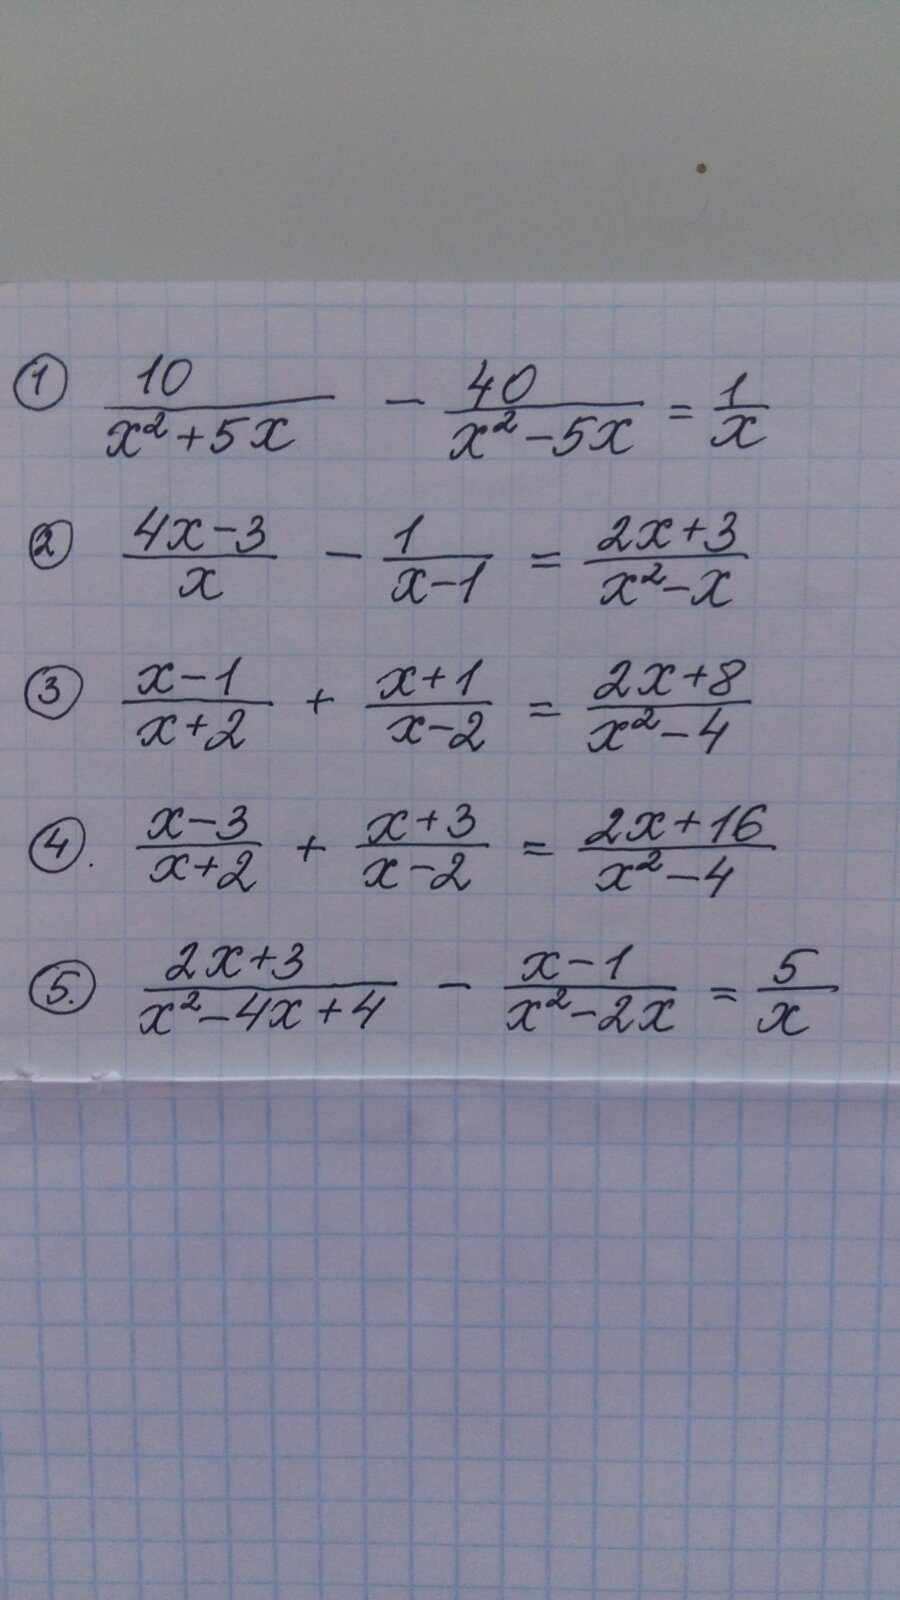 ① 10/(x²+5x) − 40/(x²−5x) = 1/x
② (4x−3)/x − 1/(x−1) = (2x+3)/(x²−x)
③ (x−1)/(x+2) + (x+1)/(x−2) = (2x+8)/(x²−4)
④. (x−3)/(x+2) + (x+3)/(x−2) = (2x+16)/(x²−4)
⑤. (2x+3)/(x²−4x+4) − (x−1)/(x²−2x) = 5/x